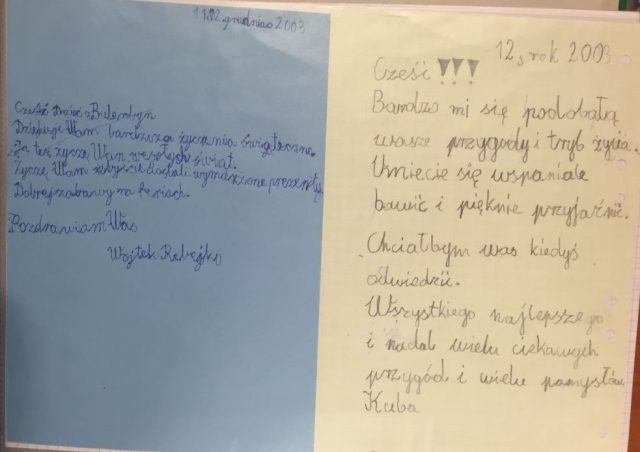 11.12 grudnia 2003
Cześć Dzieci z Bulerbyn
Dziękuję Wam bardzo za życzenia świąteczne.
Ja też życzę Wam wesołych świąt.
Życzę Wam żebyście dostali wymarzone prezenty.
Dobrej zabawy na feriach.
Pozdrawiam Was
Wojtek
12, rok 2003
Cześć !!!
Bardzo mi się podobałą
wasze przygody i tryb życia.
Umiecie się wspaniale
bawić i pięknie przyjaźnić.
Chciałbym was kiedyś
odwiedzić.
Wszystkiego najlepszego
i nadal wielu ciekawych
przygód i wielu pomysłów.
Kuba